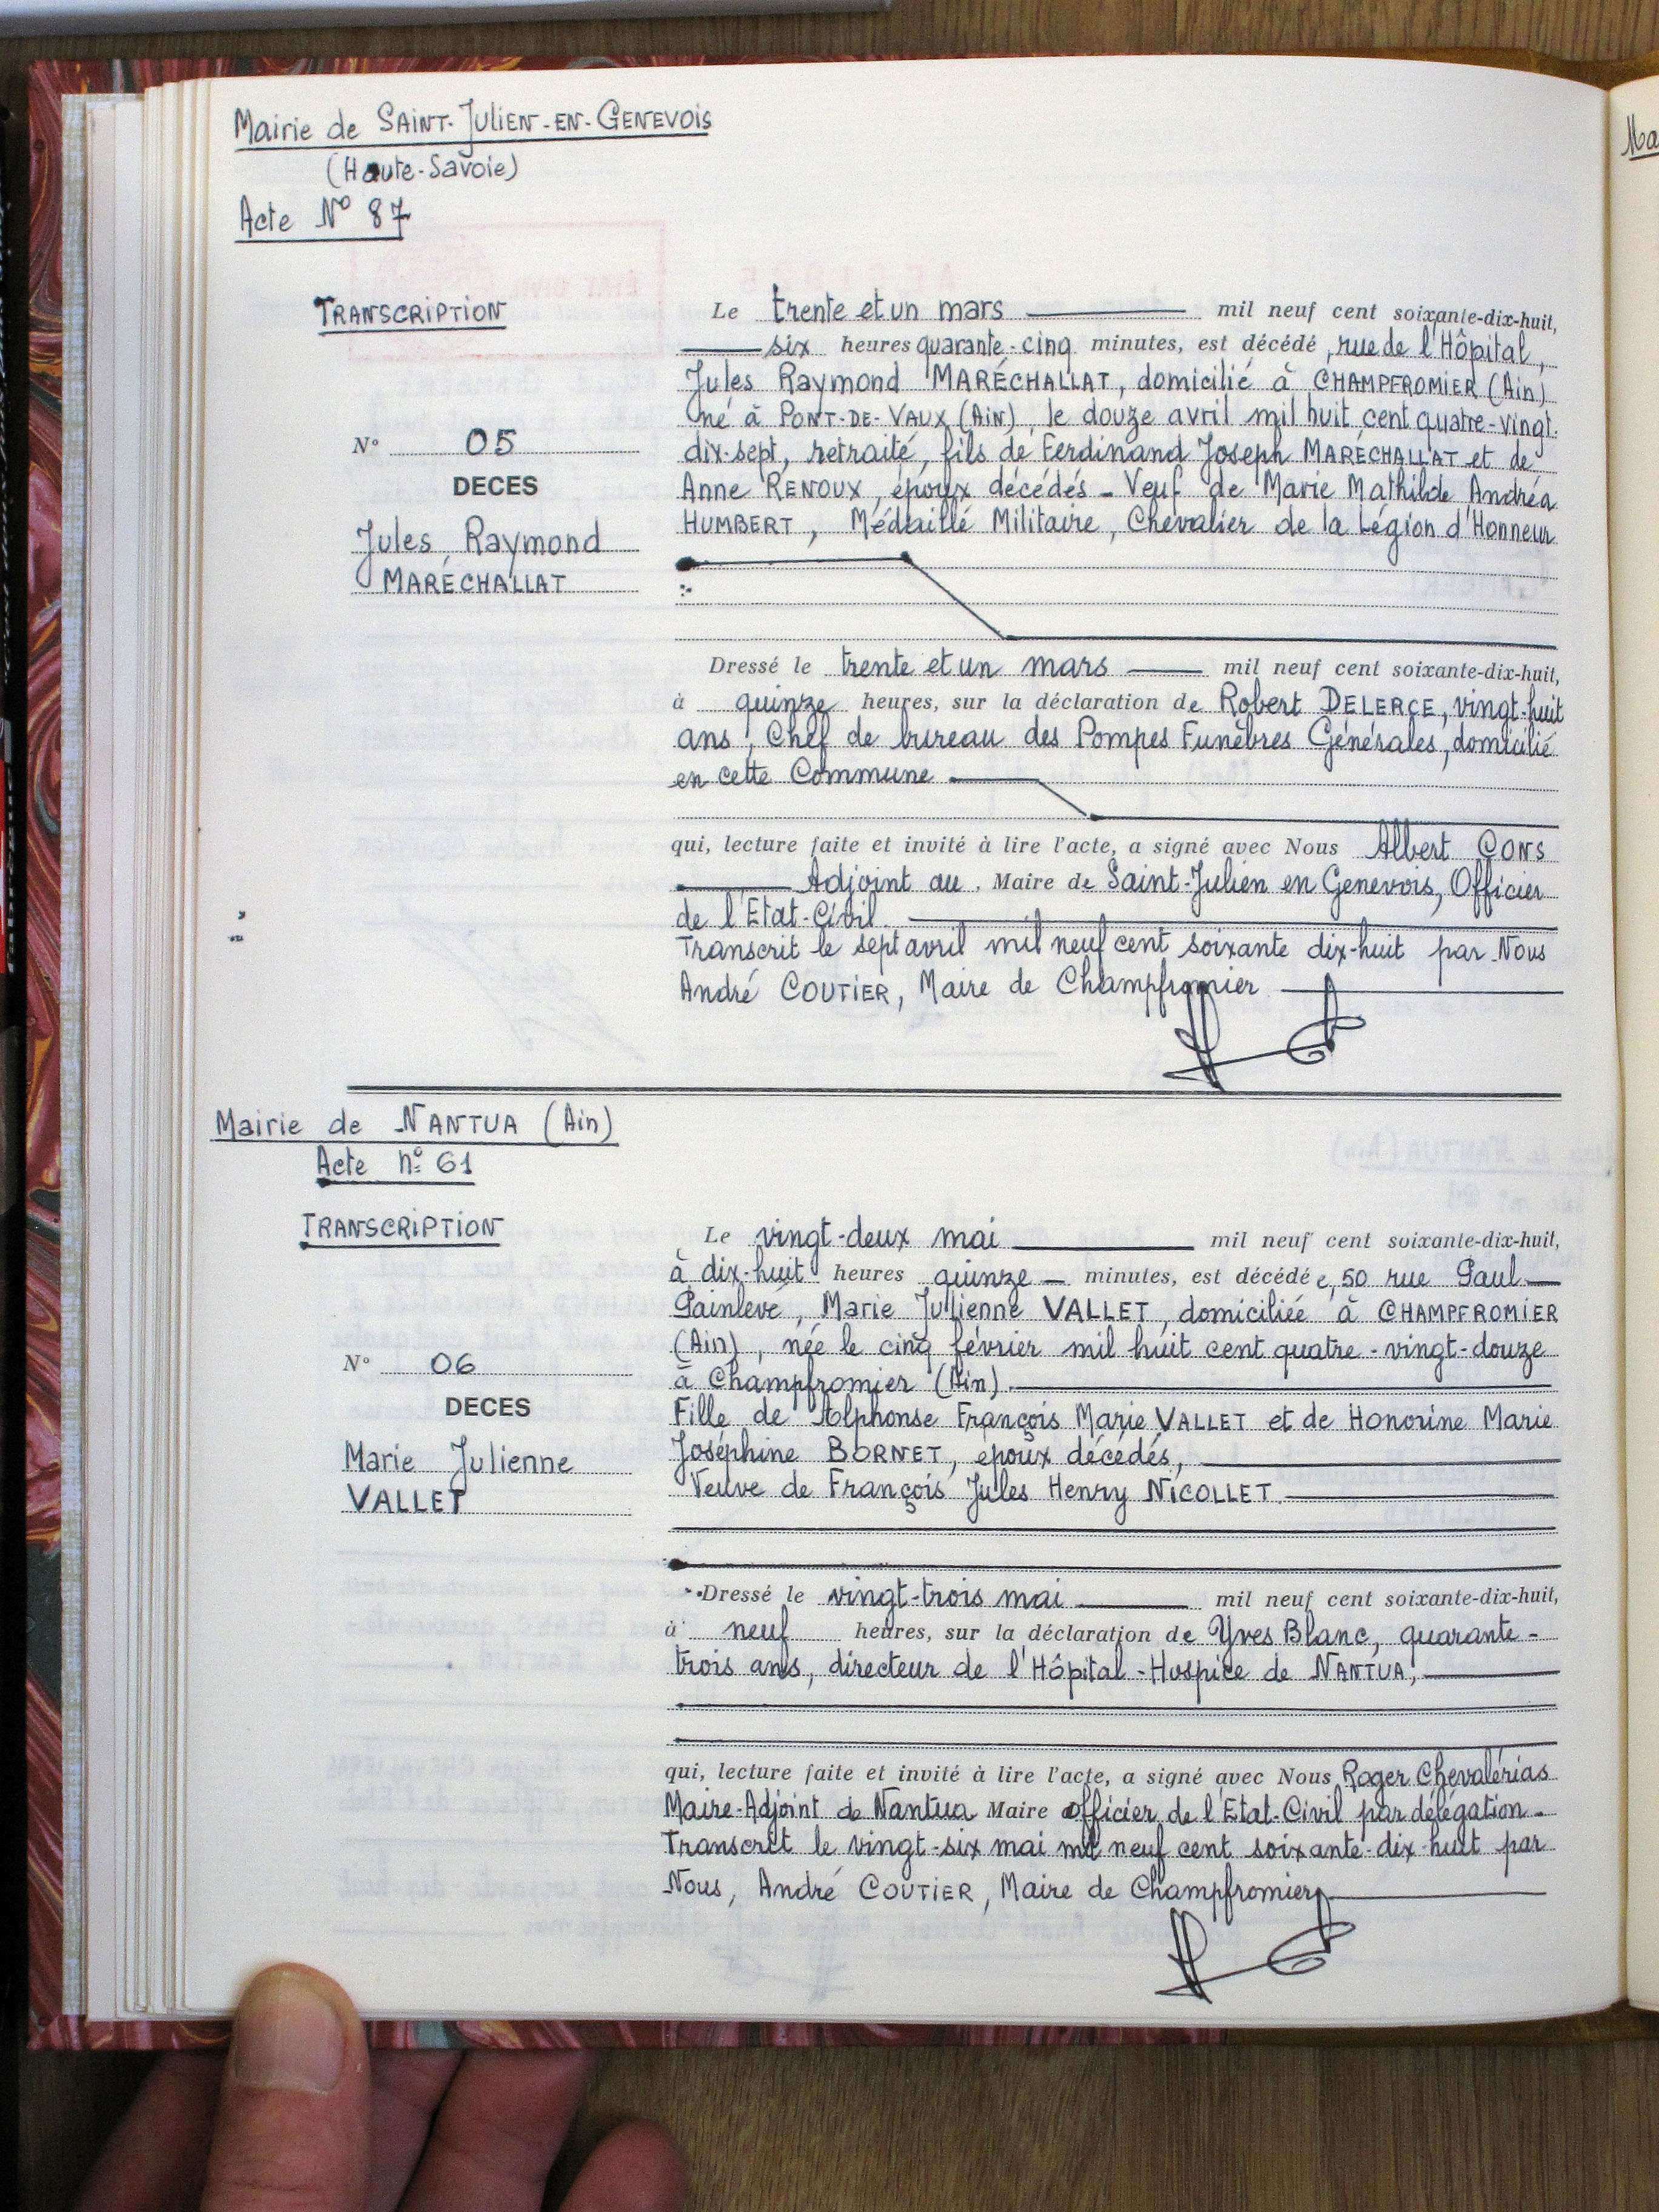 Mairie de SAINT-JULIEN-EN-GENEVOIS
(Haute-Savoie)
Acte N° 87
TRANSCRIPTION
Le trente et un mars mil neuf cent soixante-dix-huit,
six heures quarante-cinq minutes, est décédé, rue de l'Hôpital,
Jules Raymond MARÉCHALLAT, domicilié à CHAMPFROMIER (Ain)
né à PONT-DE-VAUX (AIN), le douze avril mil huit cent quatre-vingt
dix-sept, retraité, fils de Ferdinand Joseph MARÉCHALLAT et de
Anne RENOUX, époux décédés - Veuf de Marie Mathilde Andréa
HUMBERT, Médaillé Militaire, Chevalier de la Légion d'Honneur
N° 05
DECES
Jules Raymond
MARÉCHALLAT
Dressé le trente et un mars mil neuf cent soixante-dix-huit,
à quinze heures, sur la déclaration de Robert DELERCE, vingt-huit
ans, Chef de bureau des Pompes Funèbres Générales, domicilié
en cette Commune
qui, lecture faite et invité à lire l'acte, a signé avec Nous Albert CONS
Adjoint au Maire de Saint-Julien en Genevois, Officier
de l'Etat-Civil
Transcrit le sept avril mil neuf cent soixante dix-huit par Nous
André COUTIER, Maire de Champfromier
Mairie de NANTUA (Ain)
Acte n° 61
TRANSCRIPTION
Le vingt-deux mai mil neuf cent soixante-dix-huit,
à dix-huit heures quinze minutes, est décédée, 50 rue Paul
Painlevé, Marie Julienne VALLET, domiciliée à CHAMPFROMIER
(Ain), née le cinq février mil huit cent quatre-vingt-douze
à Champfromier (Ain).
Fille de Alphonse François Marie VALLET et de Honorine Marie
Joséphine BORNET, époux décédés,
Veuve de François Jules Henry NICOLLET.
N° 06
DECES
Marie Julienne
VALLET
Dressé le vingt-trois mai mil neuf cent soixante-dix-huit,
à neuf heures, sur la déclaration de Yves Blanc, quarante-
trois ans, directeur de l'Hôpital-Hospice de NANTUA,
qui, lecture faite et invité à lire l'acte, a signé avec Nous Roger Chevalérias
Maire-Adjoint de Nantua Maire officier de l'Etat-Civil par délégation.
Transcrit le vingt-six mai mil neuf cent soixante-dix-huit par
Nous, André COUTIER, Maire de Champfromier
Ma